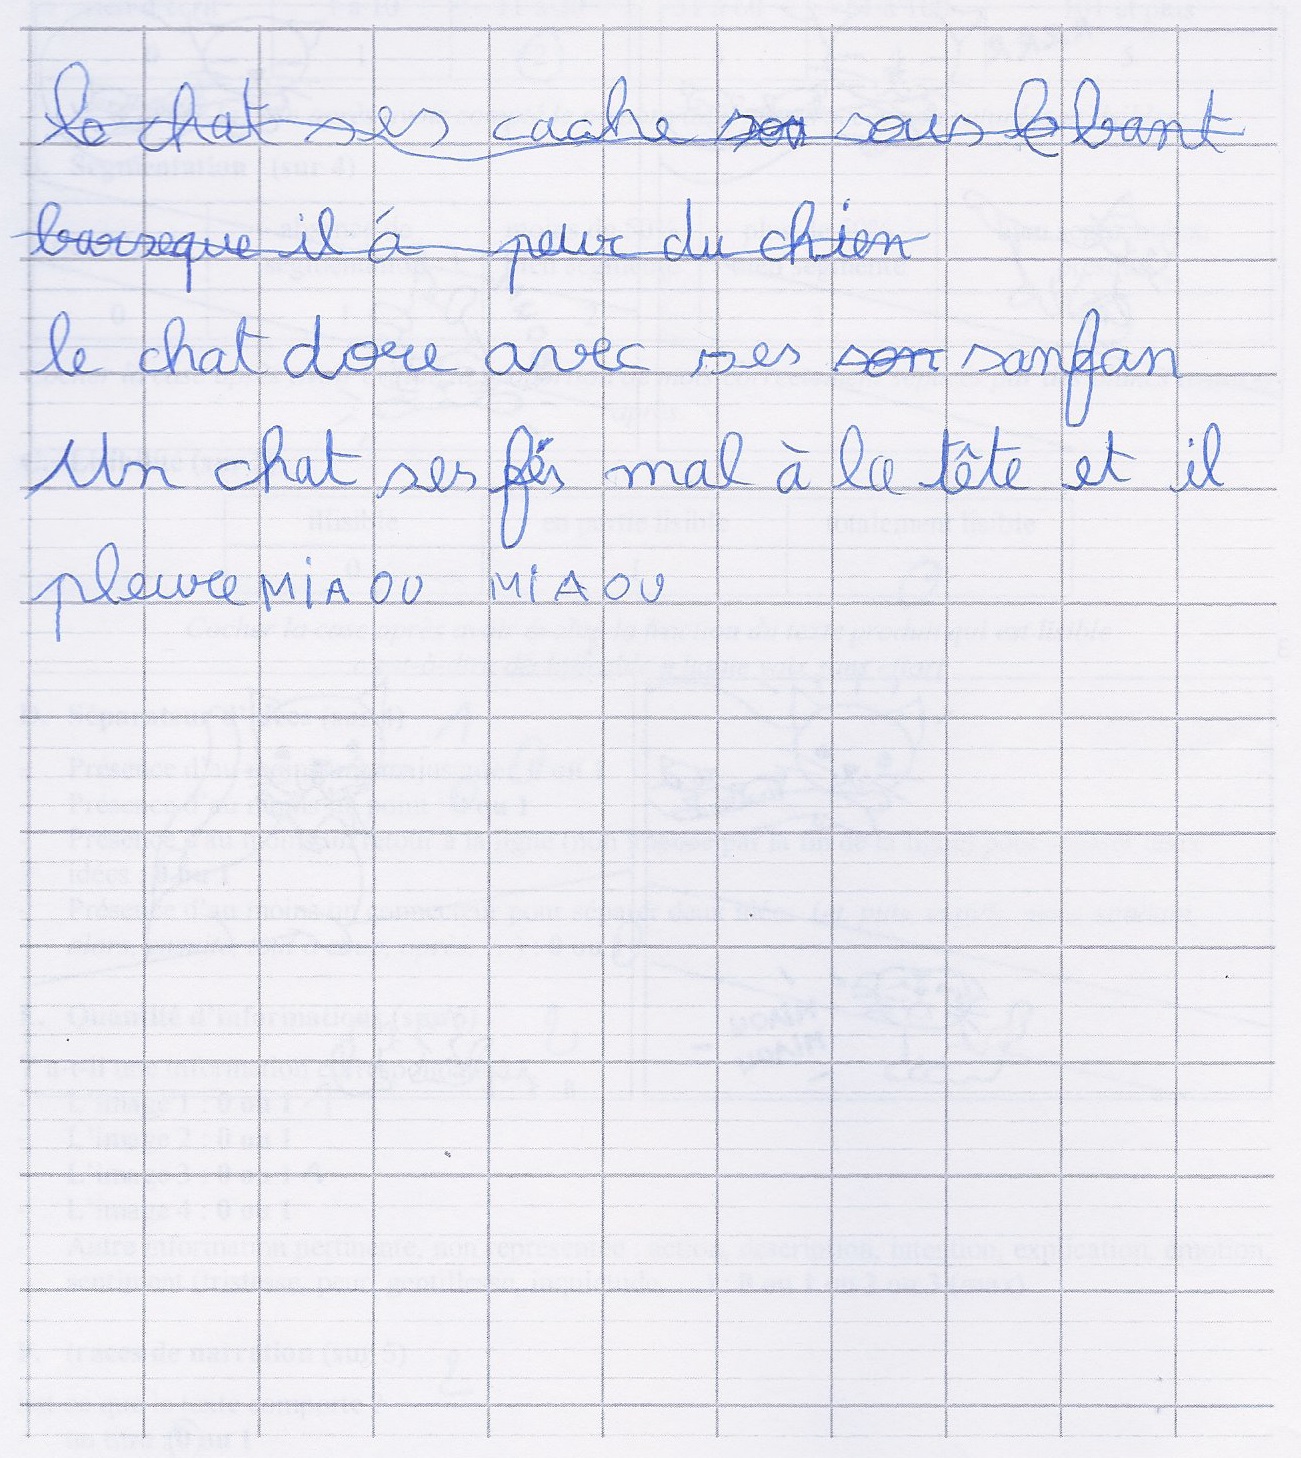 le chat ses cache son sous le bant
barseque il á peur du chien
le chat dore avec ses son sanfan
Un chat ses fés mal à la tête et il
pleure MiAOU MiAOU